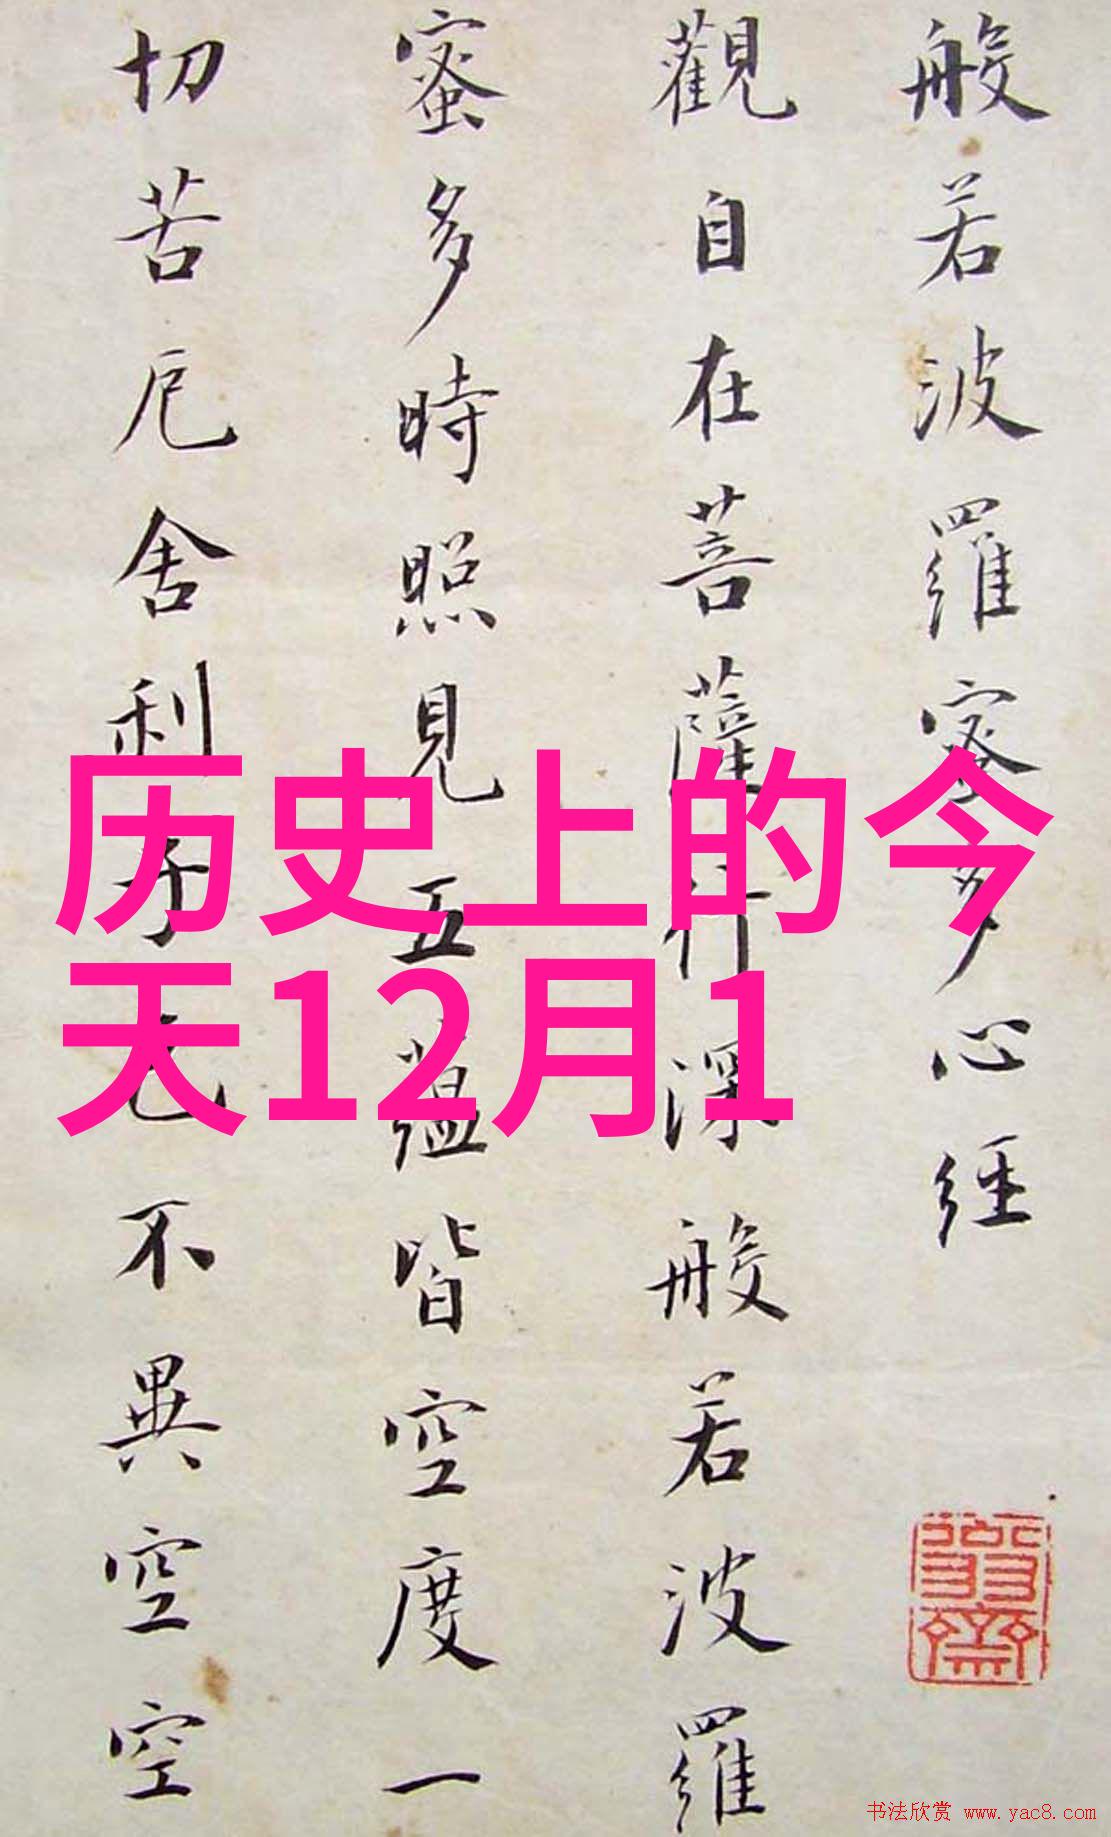 般若波羅蜜多心經
觀自在菩薩行深般若波羅
蜜多時照見五蘊皆空度一
切苦厄舍利子色不異空空
历史上的今
天12月1
书法欣赏 www.yac8.com